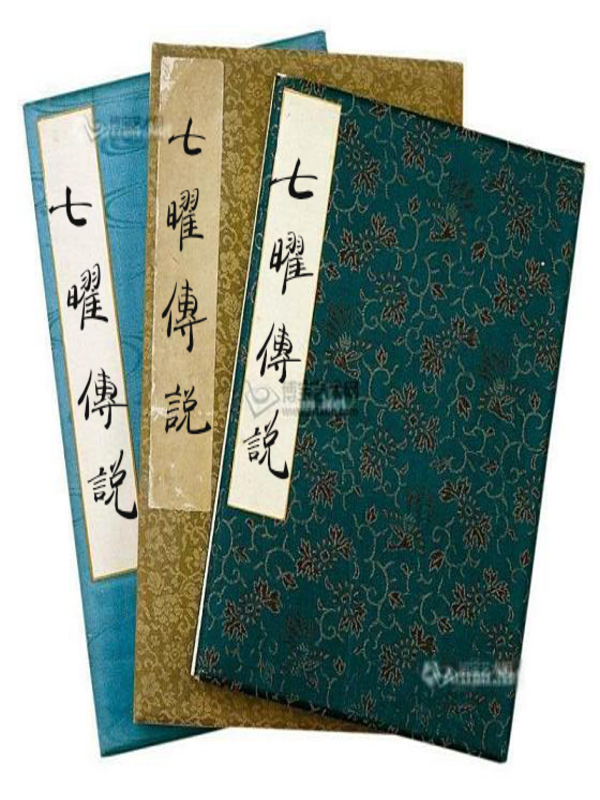 七曜傳説
七曜傳説
七曜傳説
博宝艺术网